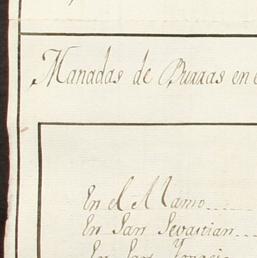 Manadas de Burras en
En el Alamo
En San Sevastian
En San Ygnacio